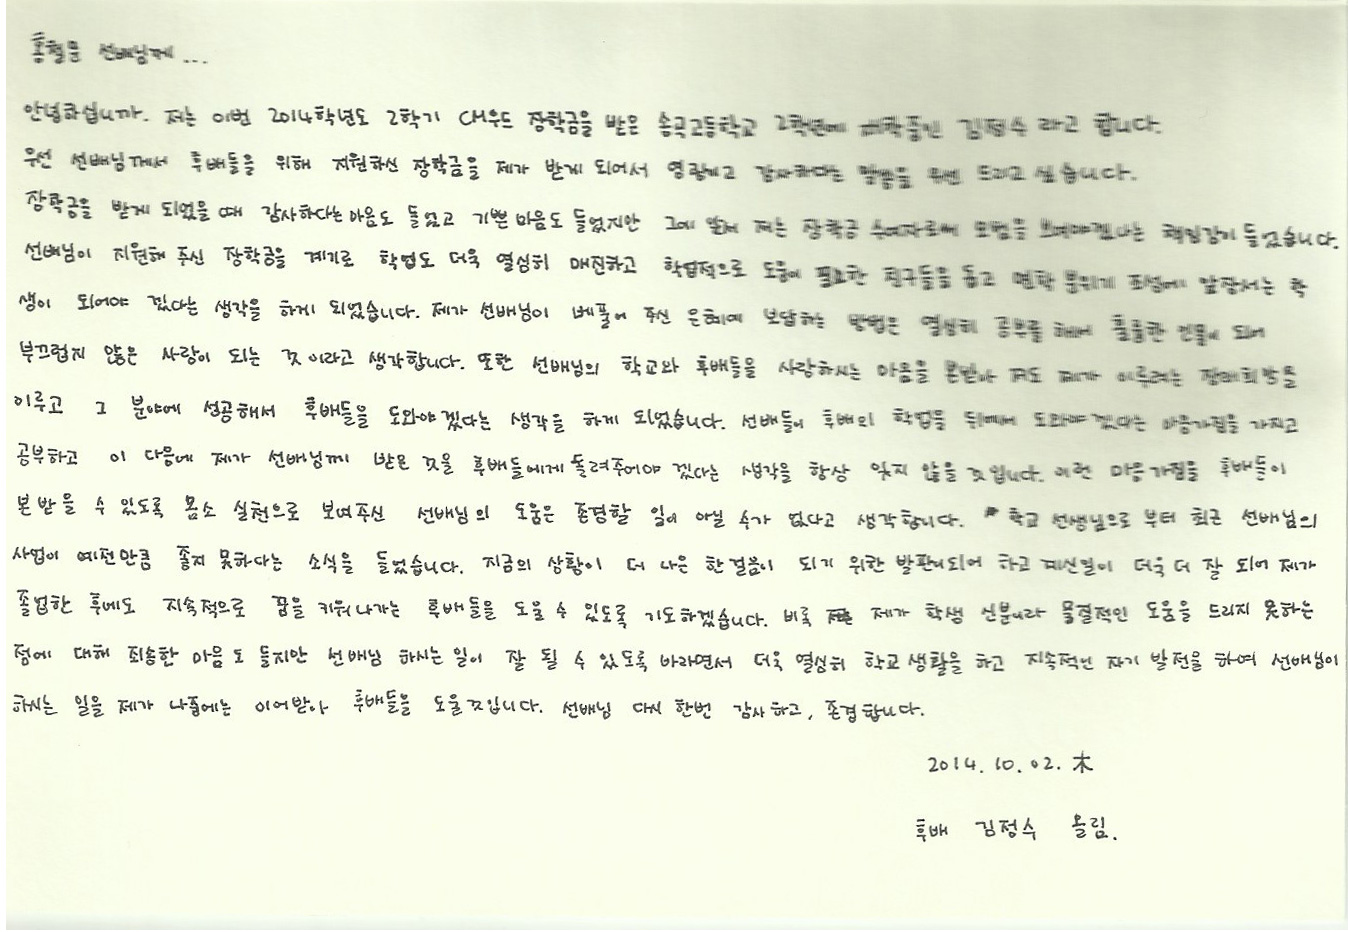 선배님께...
안녕하십니까. 저는 이번 2014학년도 2학기 CH우드 장학금을 받은 송곡고등학교 2학년에 재학중인 김정수 라고 합니다.
우선 선배님께서 후배들을 위해 지원하신 장학금을 제가 받게 되어서 영광이고 감사하다는 말씀을 우선 드리고 싶습니다.
장학금을 받게 되었을 때 감사하다는 마음도 들었고 기쁜 마음도 들었지만 그에 앞서 저는 장학금 수여자로써 모범을 보여야겠다는 책임감이 들었습니다.
선배님이 지원해 주신 장학금을 계기로 학업도 더욱 열심히 매진하고 학업적으로 도움이 필요한 친구들을 돕고 면학 분위기 조성에 앞장서는 학
생이 되어야 겠다는 생각을 하게 되었습니다. 제가 선배님이 베풀어 주신 은혜에 보답하는 방법은 열심히 공부를 해서 훌륭한 인물이 되어
부끄럽지 않은 사람이 되는 것 이라고 생각합니다. 또한 선배님의 학교와 후배들을 사랑하시는 마음을 본받아 저도 제가 이루려는 장래희망을
이루고 그 분야에 성공해서 후배들을 도와야겠다는 생각을 하게 되었습니다. 선배들이 후배의 학업을 뒤에서 도와야겠다는 마음가짐을 가지고
공부하고 이 다음에 제가 선배님께 받은 것을 후배들에게 돌려주어야 겠다는 생각을 항상 잊지 않을 것 입니다. 이런 마음가짐을 후배들이
본받을 수 있도록 몸소 실천으로 보여주신 선배님의 도움은 존경할 일이 아닐 수가 없다고 생각합니다. 학교 선생님으로 부터 최근 선배님의
사업이 예전만큼 좋지 못하다는 소식을 들었습니다. 지금의 상황이 더 나은 한걸음이 되기 위한 발판이되어 하고 계신일이 더욱 더 잘 되어 제가
졸업한 후에도 지속적으로 꿈을 키워나가는 후배들을 도울 수 있도록 기도하겠습니다. 비록 제가 학생 신분이라 물질적인 도움을 드리지 못하는
점에 대해 죄송한 마음도 들지만 선배님 하시는 일이 잘 될 수 있도록 바라면서 더욱 열심히 학교생활을 하고 지속적인 자기 발전을 하여 선배님이
하시는 일을 제가 나중에는 이어받아 후배들을 도울것입니다. 선배님 다시 한번 감사하고, 존경합니다.
2014. 10. 02. 木
후배 김정수 올림.